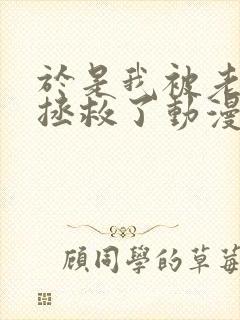 於是我被老
拯救了動漫
顧同學的草莓